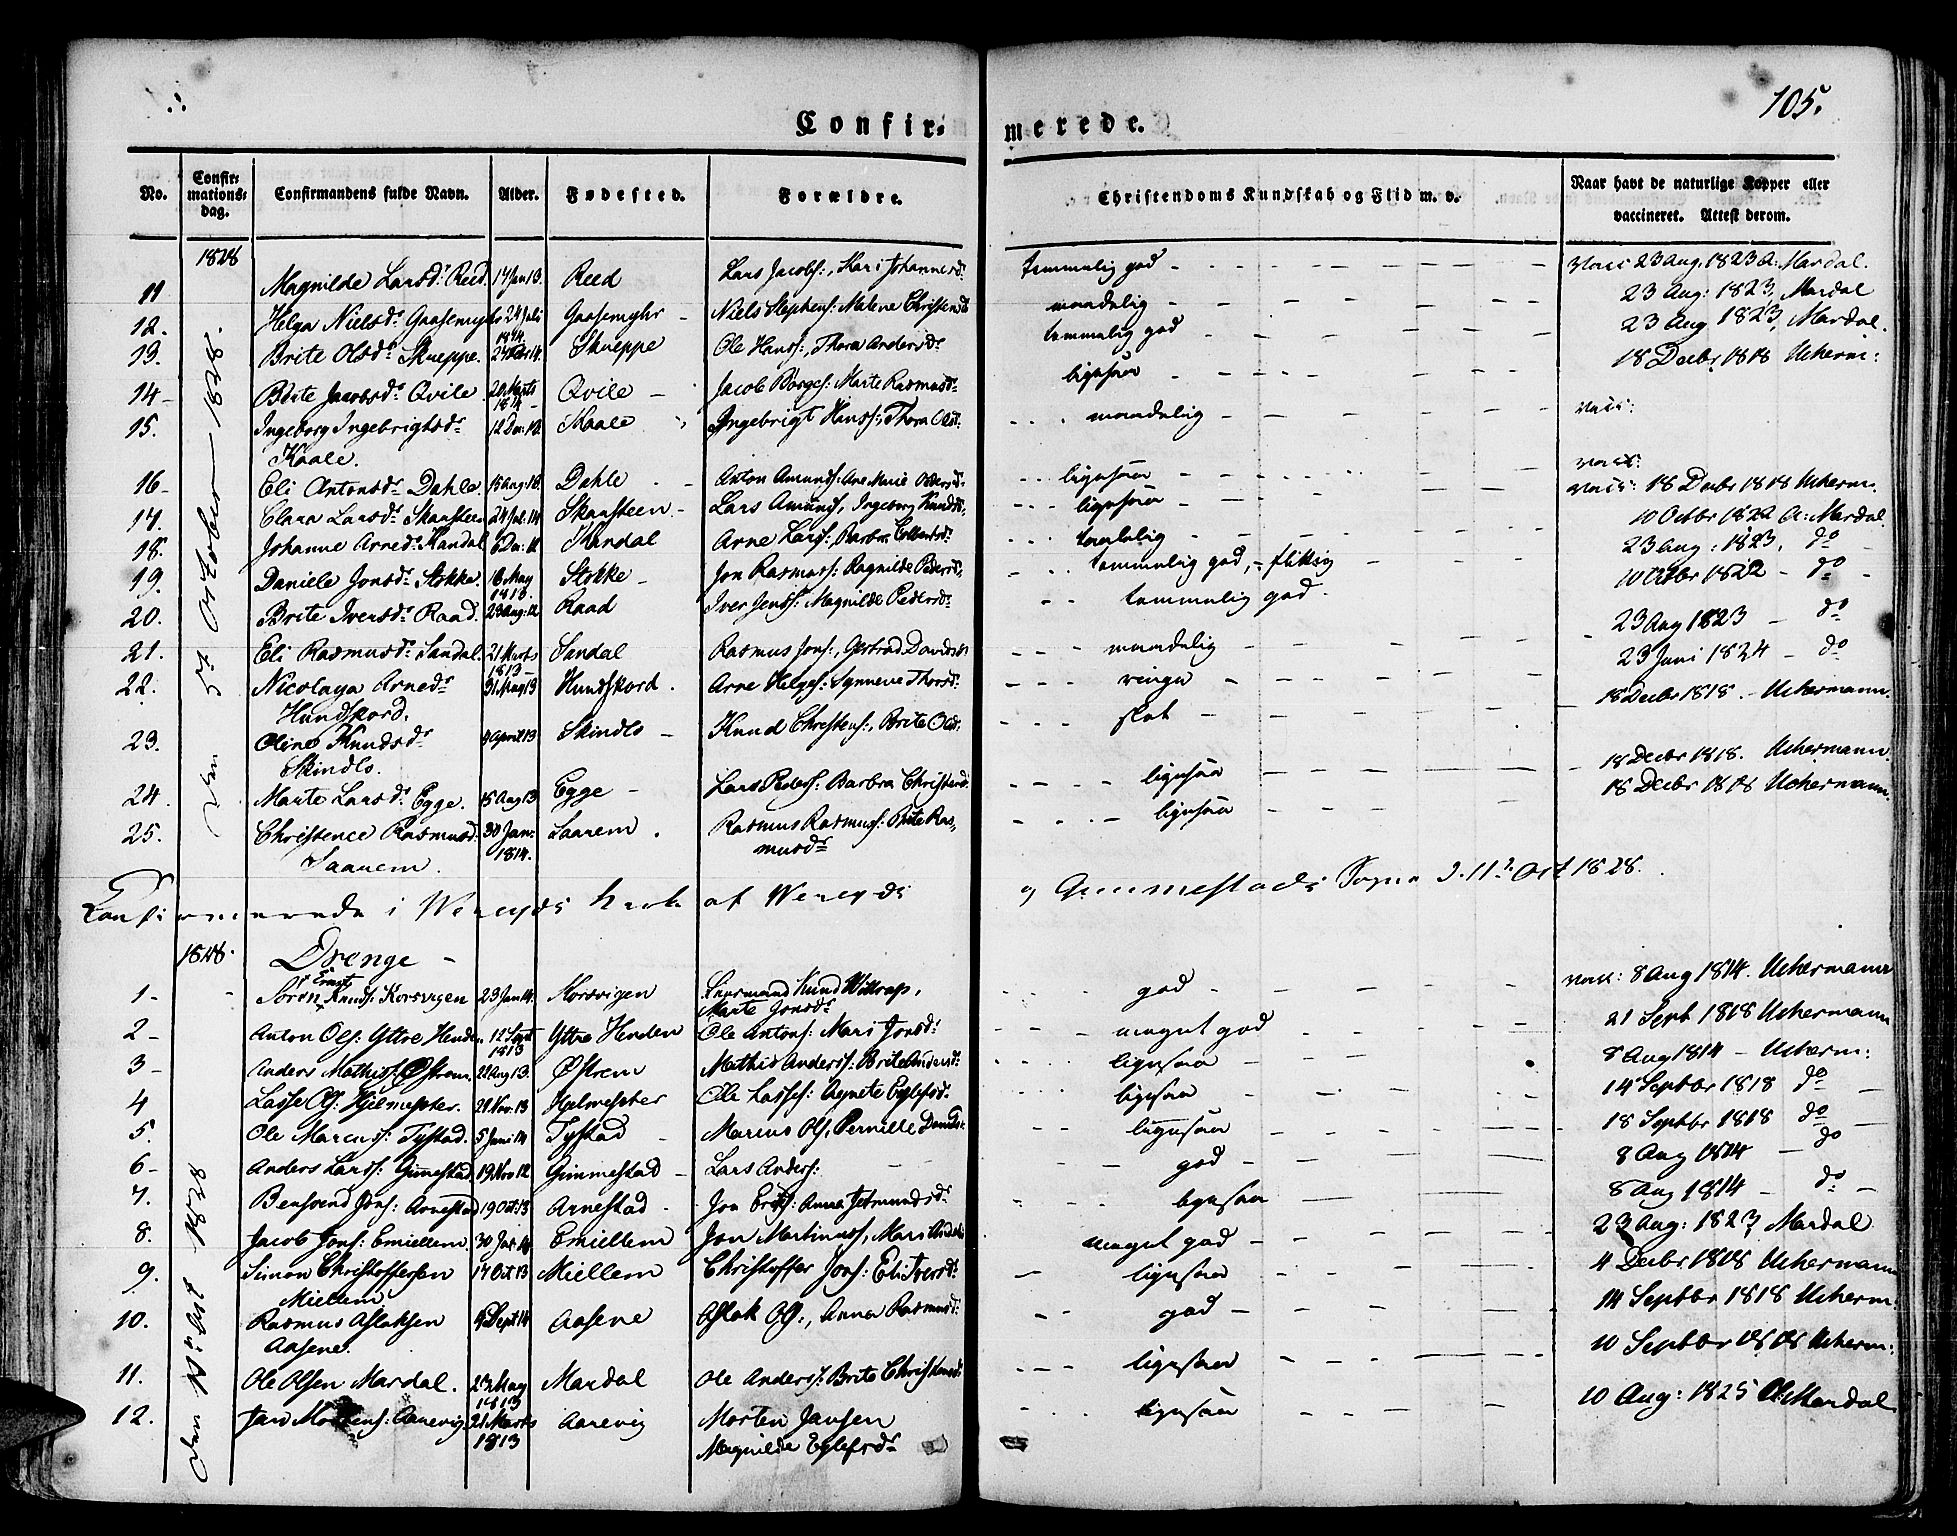 105.
Confirmerede.
No. Confirmationsdag. Confirmandens fulde Navn. Alder. Fødested. Forældre. Christendoms Kundskab og Flid m. v. Naar havt de naturlige Kopper eller vaccineret. Attest derom.
1828
den 5t October 1828.
11 Magnilde Larsdr Reed. 17 Jan 13. Reed Lars Jacobs:, Mari Johannesdr temmelig god Vacc 23 Aug. 1823 A: Mardal.
12. Helga Nielsdr Gaasemyhr 24 Juli 1814. Gaasemyhr Niels Stephens: Malene Christensd: maadelig 23 Aug: 1823, Mardal
13. Brite Olsdr Skueppe. Skueppe Ole Hanss:, Thora Andersdr temmelig god 23 Aug 1823, Mardal.
14 Brite Jacobsdr Qvile 20 Marts 1814 Qvile Jacob Børges: Marte Rasmusdr ligesaa 18 Decbr 1818 Ucherm:
15. Ingeborg Ingebrigtsdr 12 Dec: 12. Kaale Ingebrigt Hanss:, Thora Olsd: maadelig Vacc:
Kaale.
16 Eli Antonsdr Dahle 15 Aug: 13. Dahle Anton Amunds: Ane Marie Pedersd: ligesaa Vacc:
17. Clara Larsdr Skaasteen 24 Jul: 14 Skaasteen Lars Amunds, Ingeborg Knudsd: ligesaa Vacc: 18 Decbr 1818 Ucherm.
18. Johanne Arnedr Kandal 6 Dec: 12 Kandal Arne Lars:, Barbra taalelig 10 Octbr 1822 A: Mardal
19. Daniele Jonsdr Stokke. 16 May 1813. Stokke Jon Rasmuss: Ragnilde Pedersd: temmelig god, flittig 23 Aug: 1823, do
20. Brite Iversdr Raad. 23 Aug: 12 Raad Iver Jenss: Magnilde Pedersdr temmelig god. 10 Octbr 1822 do
21. Eli Rasmusdr Sandal. 21 Marts 1813 Sandal Rasmus Jons:, Gertrud Davidsdr maadelig 23 Aug 1823 do
22. Nicolaya Arnedr 31 Aug 13 Hundskord. Arne Helges: Synneve Thorsdr ringe 23 Juni 1824 do
Hundskord.
23. Oline Knudsdr 9 April 13 Skindlo Knud Christens:, Brite Olsd: slet 18 Decbr 1818. Uchermann.
Skindlo.
24. Marte Larsdr Egge. 15 Aug 13 Egge Lars Peders: Barbra Christensd: ligesaa 18 Decbr 1818. Uchermann.
25. Christence Rasmusd. 30 Jan: 1814. Saarem. Rasmus Rasmuss: Brite Rasmusdr ligesaa 18 Decbr 1818 Uchermann.
Saarem.
Confirmerede i Wereyds Kirke af Wereyds og Gimmestads Sogne d. 11te Oct 1828.
1828. Drenge
den 11te Oct 1828
1 Søren Ernst Knuds: Korsvigen 23 Jan 14. Korsvigen Knud Wittrup, Marte Jonsdr god Vacc: 8 Aug 1814. Uchermann
2 Anton Ols: Yttre Henden 12 Sept 1813 Yttre Henden Ole Antons: Mari Jonsdr meget god 21 Sept 1818 Uchermann
3 Anders Mathis: Østrem 22 Aug 13. Østrem Mathis Anders: Brite Andersd: ligesaa 8 Aug 1814 Ucherm:
4 Lasse Ols: Hjelmester. 21 Nov: 13 Hjelmester Ole Lasses: Agnete Eglefsd: ligesaa 14 Septbr 1818 do
5. Ole Marcus: Tystad. 5 Juni 14 Tystad Marcus Ols, Pernille Davidsd: ligesaa 18 Septbr 1818 do
6 Anders Larss: Gimmestad 19 Nov 12 Gimmestad Lars Anderss: god 8 Aug 1814 do
7. Bendtvend Jons: Arnestad 19 Oct: 13 Arnestad. Jon Anne Jetmundsdr ligesaa 8 Aug 1814 do
8. Jacob Jons: Emiellem 30 Jul: 14 Emiellem Jon Martinuss, Mari Andersd: meget god 23 Aug: 1823 Mardal
9. Simon Christoffersen 17 Oct 13 Miellem Christoffer Jons: Eli Iversd: ligesaa 4 Decbr 1818 Uchermann
Miellem
10. Rasmus Aslaksen 4 Sept 14 Aasene Aslak Ols:, Anna Rasmusd: god 14 Septbr 1818 Ucherm.
Aasene.
11. Ole Olsen Mardal. 23 May 1813 Mardal Ole Anders: Brite Christensd: ligesaa 10 Septbr 1818 Ucherm:
12. Jan Mortens: Aarevig 21 Marts 1813 Aarevig Morten Jansen ligesaa 10 Aug: 1825 A: Mardal
Magnilde Eglefsdr